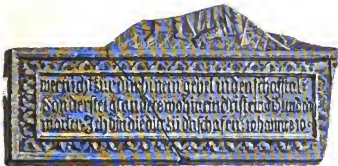 wer nicht zur thür hinein gehet in den schafstal
sondern steiget anderswo hinein der ist ein dieb und ein
morder Ich bin die thür zu den schafen Johannes 10